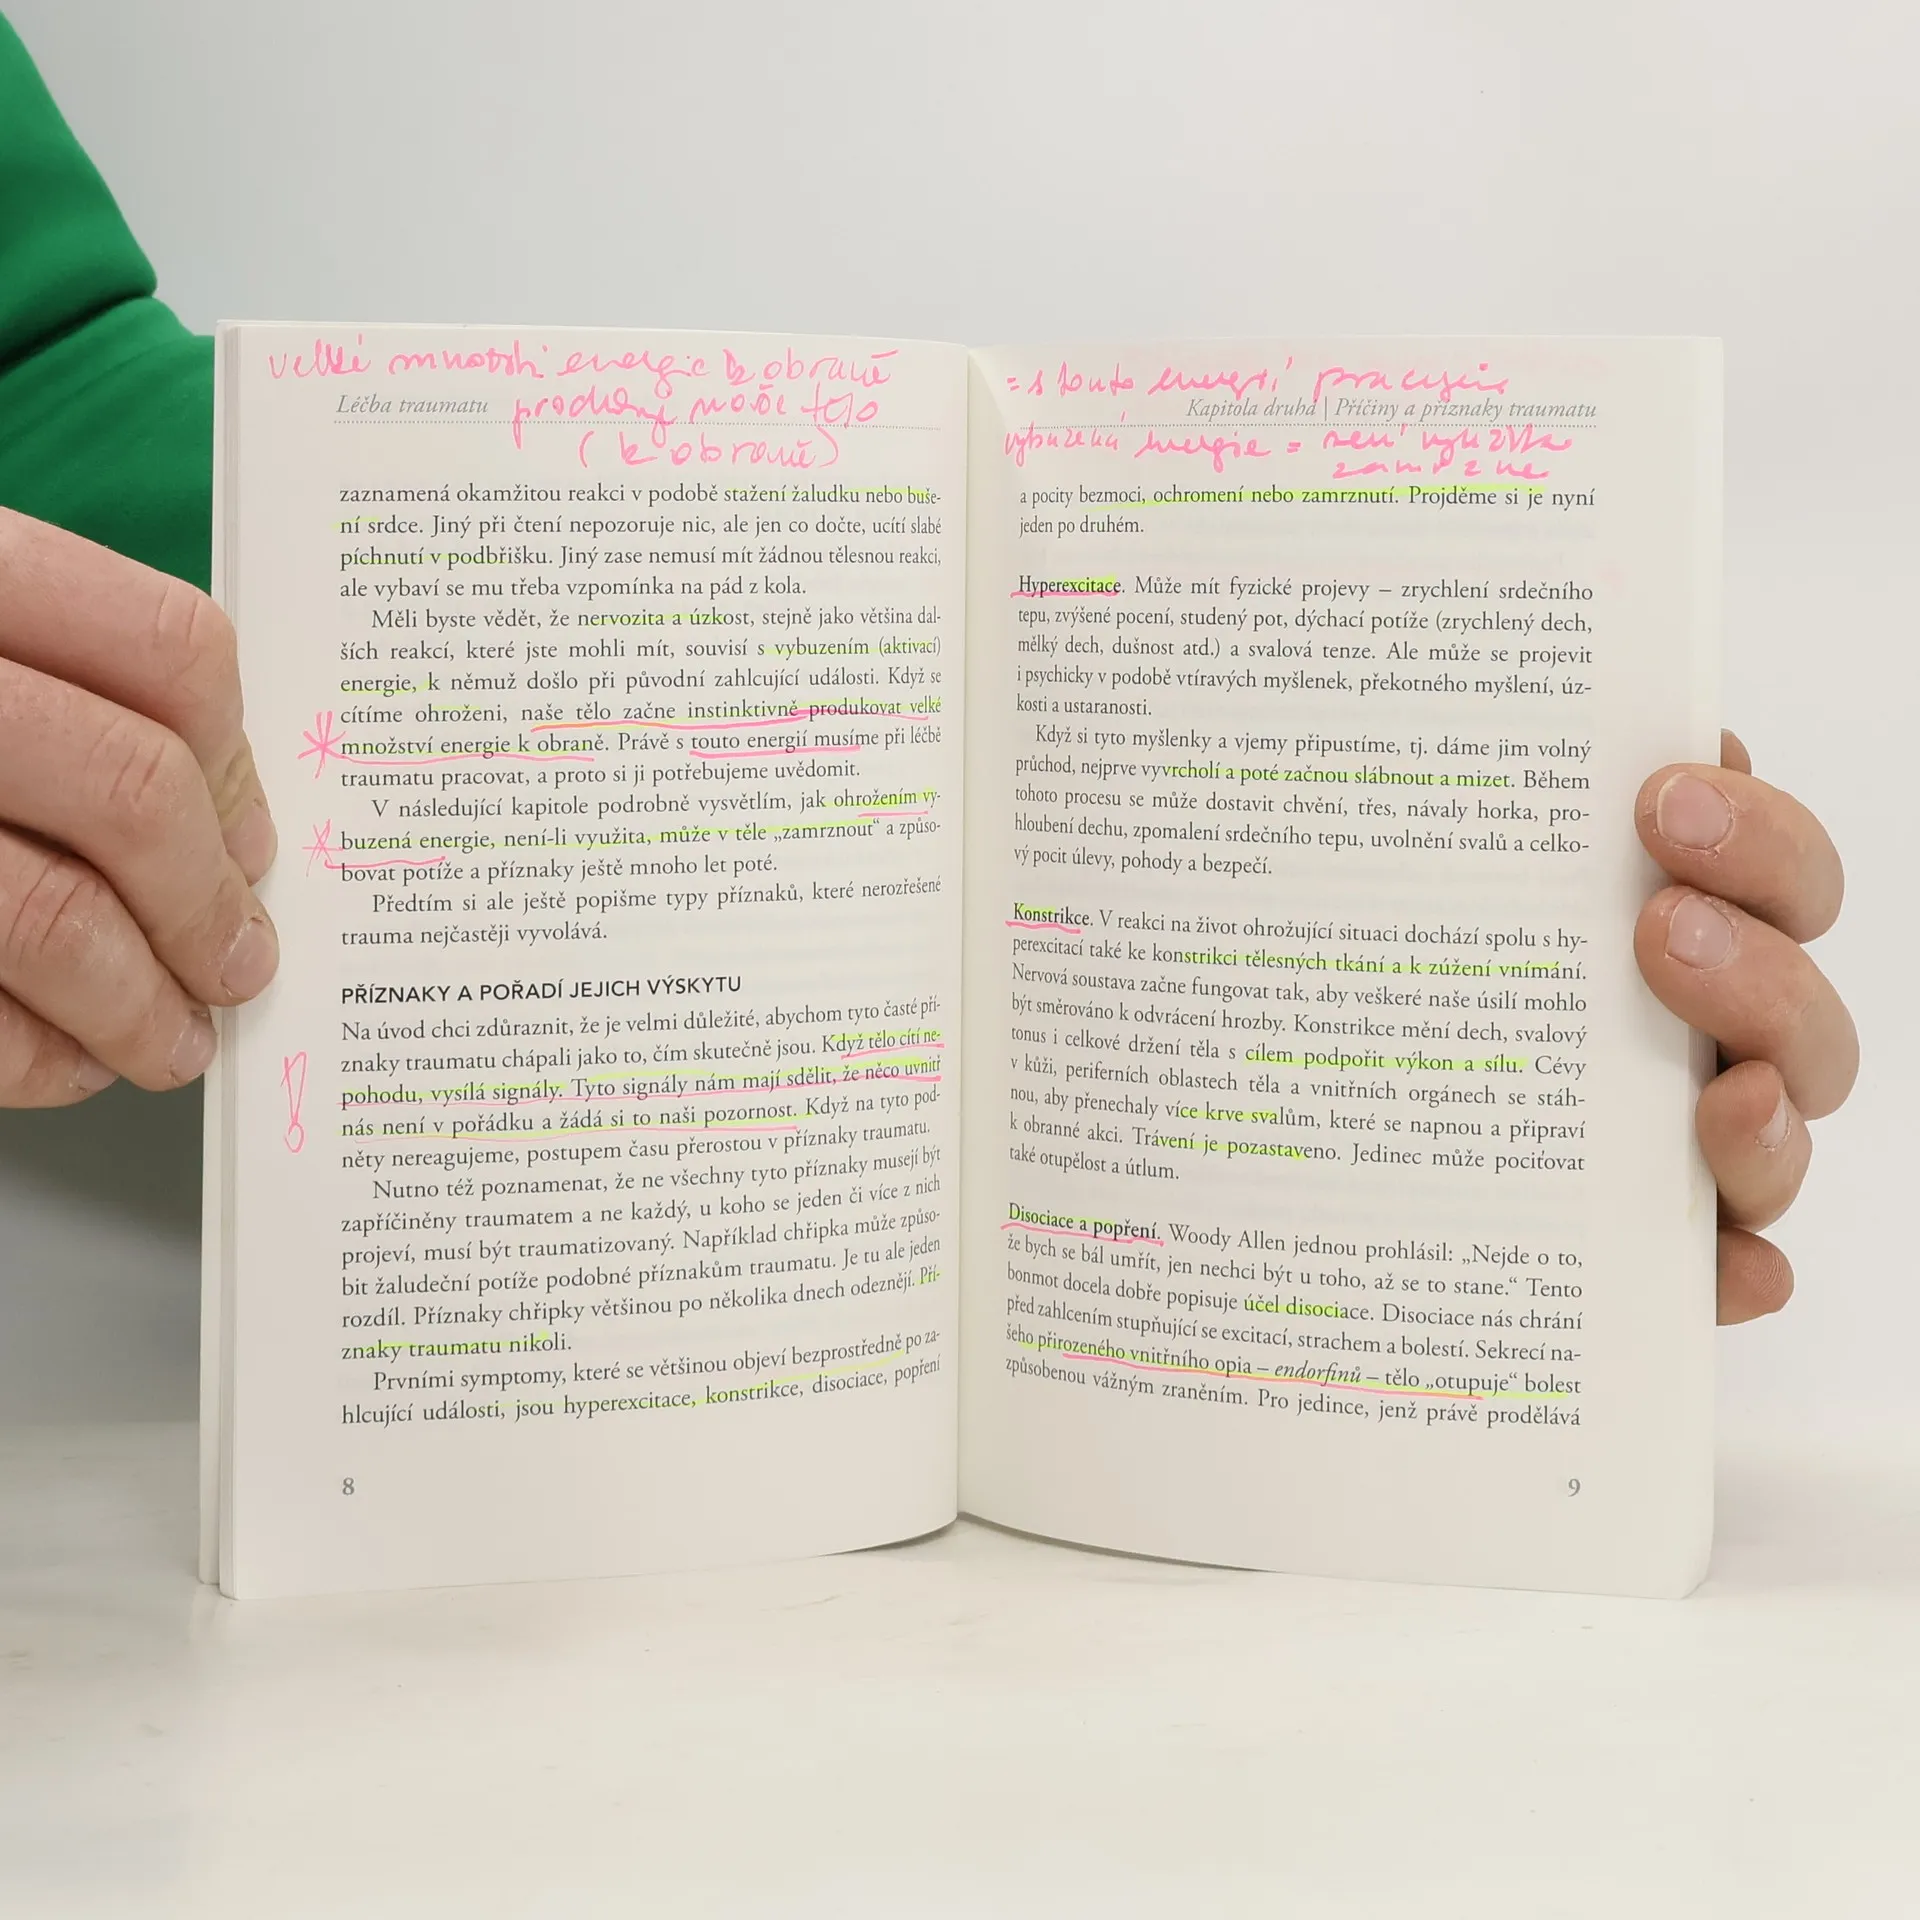 velké množství energie k obraně
Léčba traumatu
naše tělo
(k obraně)
zaznamená okamžitou reakci v podobě stažení žaludku nebo buše-
ní srdce. Jiný při čtení nepozoruje nic, ale jen co dočte, ucítí slabé
píchnutí v podbřišku. Jiný zase nemusí mít žádnou tělesnou reakci,
ale vybaví se mu třeba vzpomínka na pád z kola.
Měli byste vědět, že nervozita a úzkost, stejně jako většina dal-
ších reakcí, které jste mohli mít, souvisí s vybuzením (aktivací)
energie, k němuž došlo při původní zahlcující události. Když se
cítíme ohroženi, naše tělo začne instinktivně produkovat velké
množství energie k obraně. Právě s touto energií musíme při léčbě
traumatu pracovat, a proto si ji potřebujeme uvědomit.
V následující kapitole podrobně vysvětlím, jak ohrožením vy-
buzená energie, není-li využita, může v těle „zamrznout“ a způso-
bovat potíže a příznaky ještě mnoho let poté.
Předtím si ale ještě popišme typy příznaků, které nerozřešené
trauma nejčastěji vyvolává.
PŘÍZNAKY A POŘADÍ JEJICH VÝSKYTU
Na úvod chci zdůraznit, že je velmi důležité, abychom tyto časté pří-
znaky traumatu chápali jako to, čím skutečně jsou. Když tělo cítí ne-
pohodu, vysílá signály. Tyto signály nám mají sdělit, že něco uvnitř
nás není v pořádku a žádá si to naši pozornost. Když na tyto pod-
něty nereagujeme, postupem času přerostou v příznaky traumatu.
Nutno též poznamenat, že ne všechny tyto příznaky musejí být
zapříčiněny traumatem a ne každý, u koho se jeden či více z nich
projeví, musí být traumatizovaný. Například chřipka může způso-
bit žaludeční potíže podobné příznakům traumatu. Je tu ale jeden
rozdíl. Příznaky chřipky většinou po několika dnech odeznějí. Pří-
znaky traumatu nikoli.
Prvními symptomy, které se většinou objeví bezprostředně po za-
hlcující události, jsou hyperexcitace, konstrikce, disociace, popření
8
= s touto energií pracujeme
Kapitola druhá | Příčiny a příznaky traumatu
vybuzená energie = není využita
zamrzne
a pocity bezmoci, ochromení nebo zamrznutí. Projděme si je nyní
jeden po druhém.
Hyperexcitace. Může mít fyzické projevy – zrychlení srdečního
tepu, zvýšené pocení, studený pot, dýchací potíže (zrychlený dech,
mělký dech, dušnost atd.) a svalová tenze. Ale může se projevit
i psychicky v podobě vtíravých myšlenek, překotného myšlení, úz-
kosti a ustaranosti.
Když si tyto myšlenky a vjemy připustíme, tj. dáme jim volný
průchod, nejprve vyvrcholí a poté začnou slábnout a mizet. Během
tohoto procesu se může dostavit chvění, třes, návaly horka, pro-
hloubení dechu, zpomalení srdečního tepu, uvolnění svalů a celko-
vý pocit úlevy, pohody a bezpečí.
Konstrikce. V reakci na život ohrožující situaci dochází spolu s hy-
perexcitací také ke konstrikci tělesných tkání a k zúžení vnímání.
Nervová soustava začne fungovat tak, aby veškeré naše úsilí mohlo
být směrováno k odvrácení hrozby. Konstrikce mění dech, svalový
tonus i celkové držení těla s cílem podpořit výkon a sílu. Cévy
v kůži, periferních oblastech těla a vnitřních orgánech se stáh-
nou, aby přenechaly více krve svalům, které se napnou a připraví
k obranné akci. Trávení je pozastaveno. Jedinec může pociťovat
také otupělost a útlum.
Disociace a popření. Woody Allen jednou prohlásil: „Nejde o to,
že bych se bál umřít, jen nechci být u toho, až se to stane.“ Tento
bonmot docela dobře popisuje účel disociace. Disociace nás chrání
před zahlcením stupňující se excitací, strachem a bolestí. Sekrecí na-
šeho přirozeného vnitřního opia – endorfinů – tělo „otupuje“ bolest
způsobenou vážným zraněním. Pro jedince, jenž právě prodělává
9